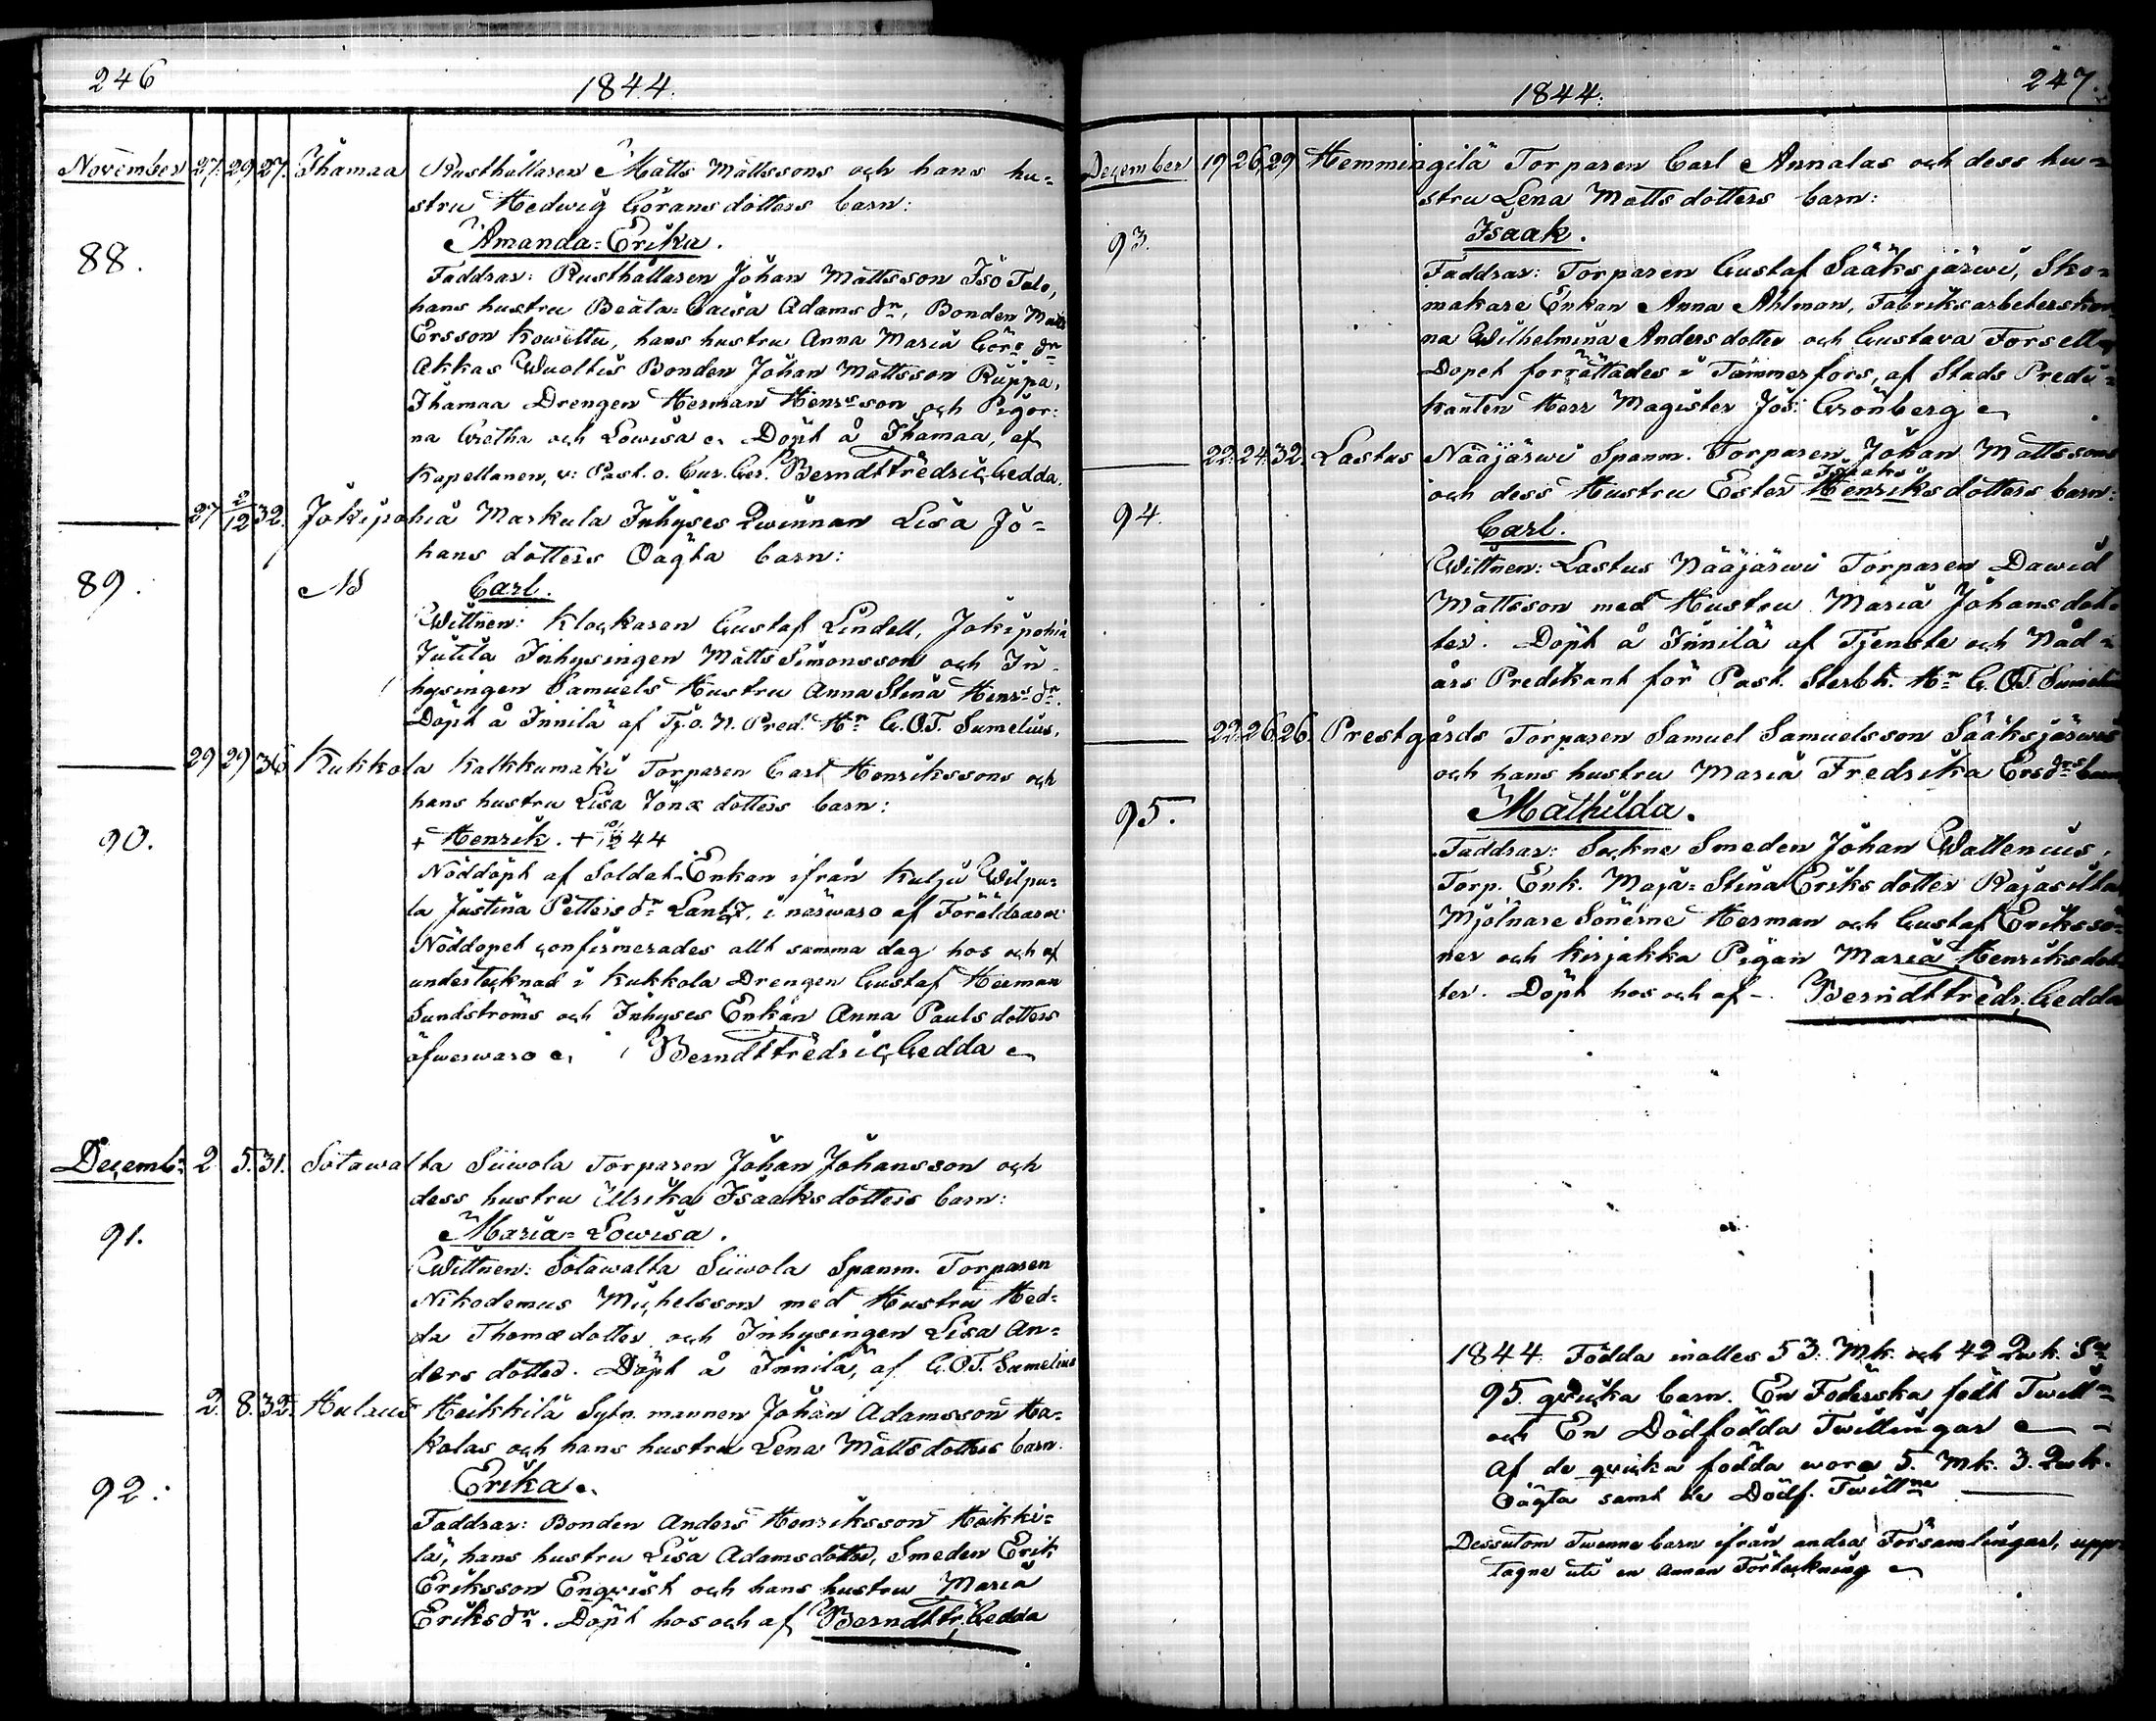 246
1844.
November 27. 29 27. Ihamaa Rusthållaren Matts Mattssons och hans hu=
stru Hedwig Görans dotters barn:
88.
Amanda=Erika.
Faddrar: Rusthållaren Johan Mattsson Iso Talo,
hans hustru Beata=Caisa Adams dr, Bonden Matts
Ersson Kowettu, hans hustru Anna Maria Görs dr
Akkas Wuoltis Bonden Johan Mattsson Ruppa,
Ihamaa Drengen Herman Henrsson och Pigor:
na Gretha och Lowisa. Döpt å Ihamaa, af
Kapellanen, v: Past. o. Cur. Ger. Berndt Fredric Gedda.
27 2/12 32. Jokipohia Markula Inhyses Qwinnan Lisa Jo=
hans dotters Oägta barn:
89. No
Carl.
Wittnen: Klockaren Gustaf Lindell, Jokipohia
Jutila Inhysingen Matts Simonsson och In
hysingen Samuels Hustru Anna Stina Henrs dr.
Döpt å Innilä af Tj. o. N. Pred. Hr G. O. T. Sumelius.
29 29 36 Kukkola Kalkkumäki Torparen Carl Henrikssons och
hans hustru Lisa Jonæ dotters barn:
90.
+ Henrik. + 10/12 44
Nöddöpt af Soldat=Enkan ifrån Kulju Wilpu=
la Justina Petters dr Lantz, i närwaro af Föräldrarne
Nöddopet confirmerades allt samma dag hos och af
undertecknad i Kukkola Drengen Gustaf Herman
Sundströms och Inhyses Enkan Anna Pauls dotters
öfwerwaro. Berndt Fredric Gedda
Decemb: 2 5. 31. Sotawalta Siiwola Torparen Johan Johansson och
dess hustru Ulrika Isaaks dotters barn:
91.
Maria=Lowisa.
Wittnen: Sotawalta Siiwola Spanm. Torparen
Nikodemus Michelsson med Hustru Hed=
da Thomæ dotter och Inhysingen Lisa An=
ders dotter. Döpt å Innilä, af G. O. T. Sumelius
2. 8. 32. Hulaus Heikkilä Sytn. mannen Johan Adamsson Ha=
kolas och hans hustru Lena Matts dotters barn.
92.
Erika.
Faddrar: Bonden Anders Henriksson Heikki=
lä, hans hustru Lisa Adamsdotter, Smeden Erik
Eriksson Enqvist och hans hustru Maria
Eriks dr. Döpt hos och af Berndt Fr. Gedda
1844. 247.
December 19 26. 29 Hemmingilä Torparen Carl Annalas och dess hu=
stru Lena Matts dotters barn:
93.
Isaak.
Faddrar: Torparen Gustaf Sääksjärwi, Sko=
makare Enkan Anna Ahlman, Fabriksarbeterskor
na Wilhelmina Anders dotter och Gustava Forsell
Dopet förrättades i Tammerfors, af Stads Predi=
kanten Herr Magister Jos: Grönberg
22. 24. 32. Lastus Nääjärwi Spanm. Torparen Johan Mattssons
Isaaks
och dess Hustru Ester Henriks dotters barn:
94.
Carl.
Wittnen: Lastus Nääjärwi Torparen Dawid
Mattsson med Hustru Maria Johans dot=
ter. Döpt å Innilä af Tjenste och Nåd=
års Predikant för Past. Sterbh. Hr G. O. T. Sumelius
22. 26. 26. Prestgårds Torparen Samuel Samuelsson Sääksjärwis
och hans hustru Maria Fredrika Ers drs barn
95.
Mathilda.
Faddrar: Sockne Smeden Johan Wallenius,
Torp. Enk. Maja=Stina Eriks dotter Rajasilta
Mjölnare Sönerne Herman och Gustaf Eriksso=
ner och Kirjakka Pigan Maria Henriksdot
ter. Döpt hos och af - Berndt Fredr. Gedda
1844 Födda inalles 53. Mk. och 42 Qwk. Sa
95. qwicka barn. En Foderska född Twill=
och En Dödfödda Twillingar
Af de qwicka födda woro 5. Mk. 3. Qwk.
Oägta samt de Dödf. Twillne
Dessutom Twenne barn ifrån andra Församlingar, upp=
tagne uti en annan Förteckning